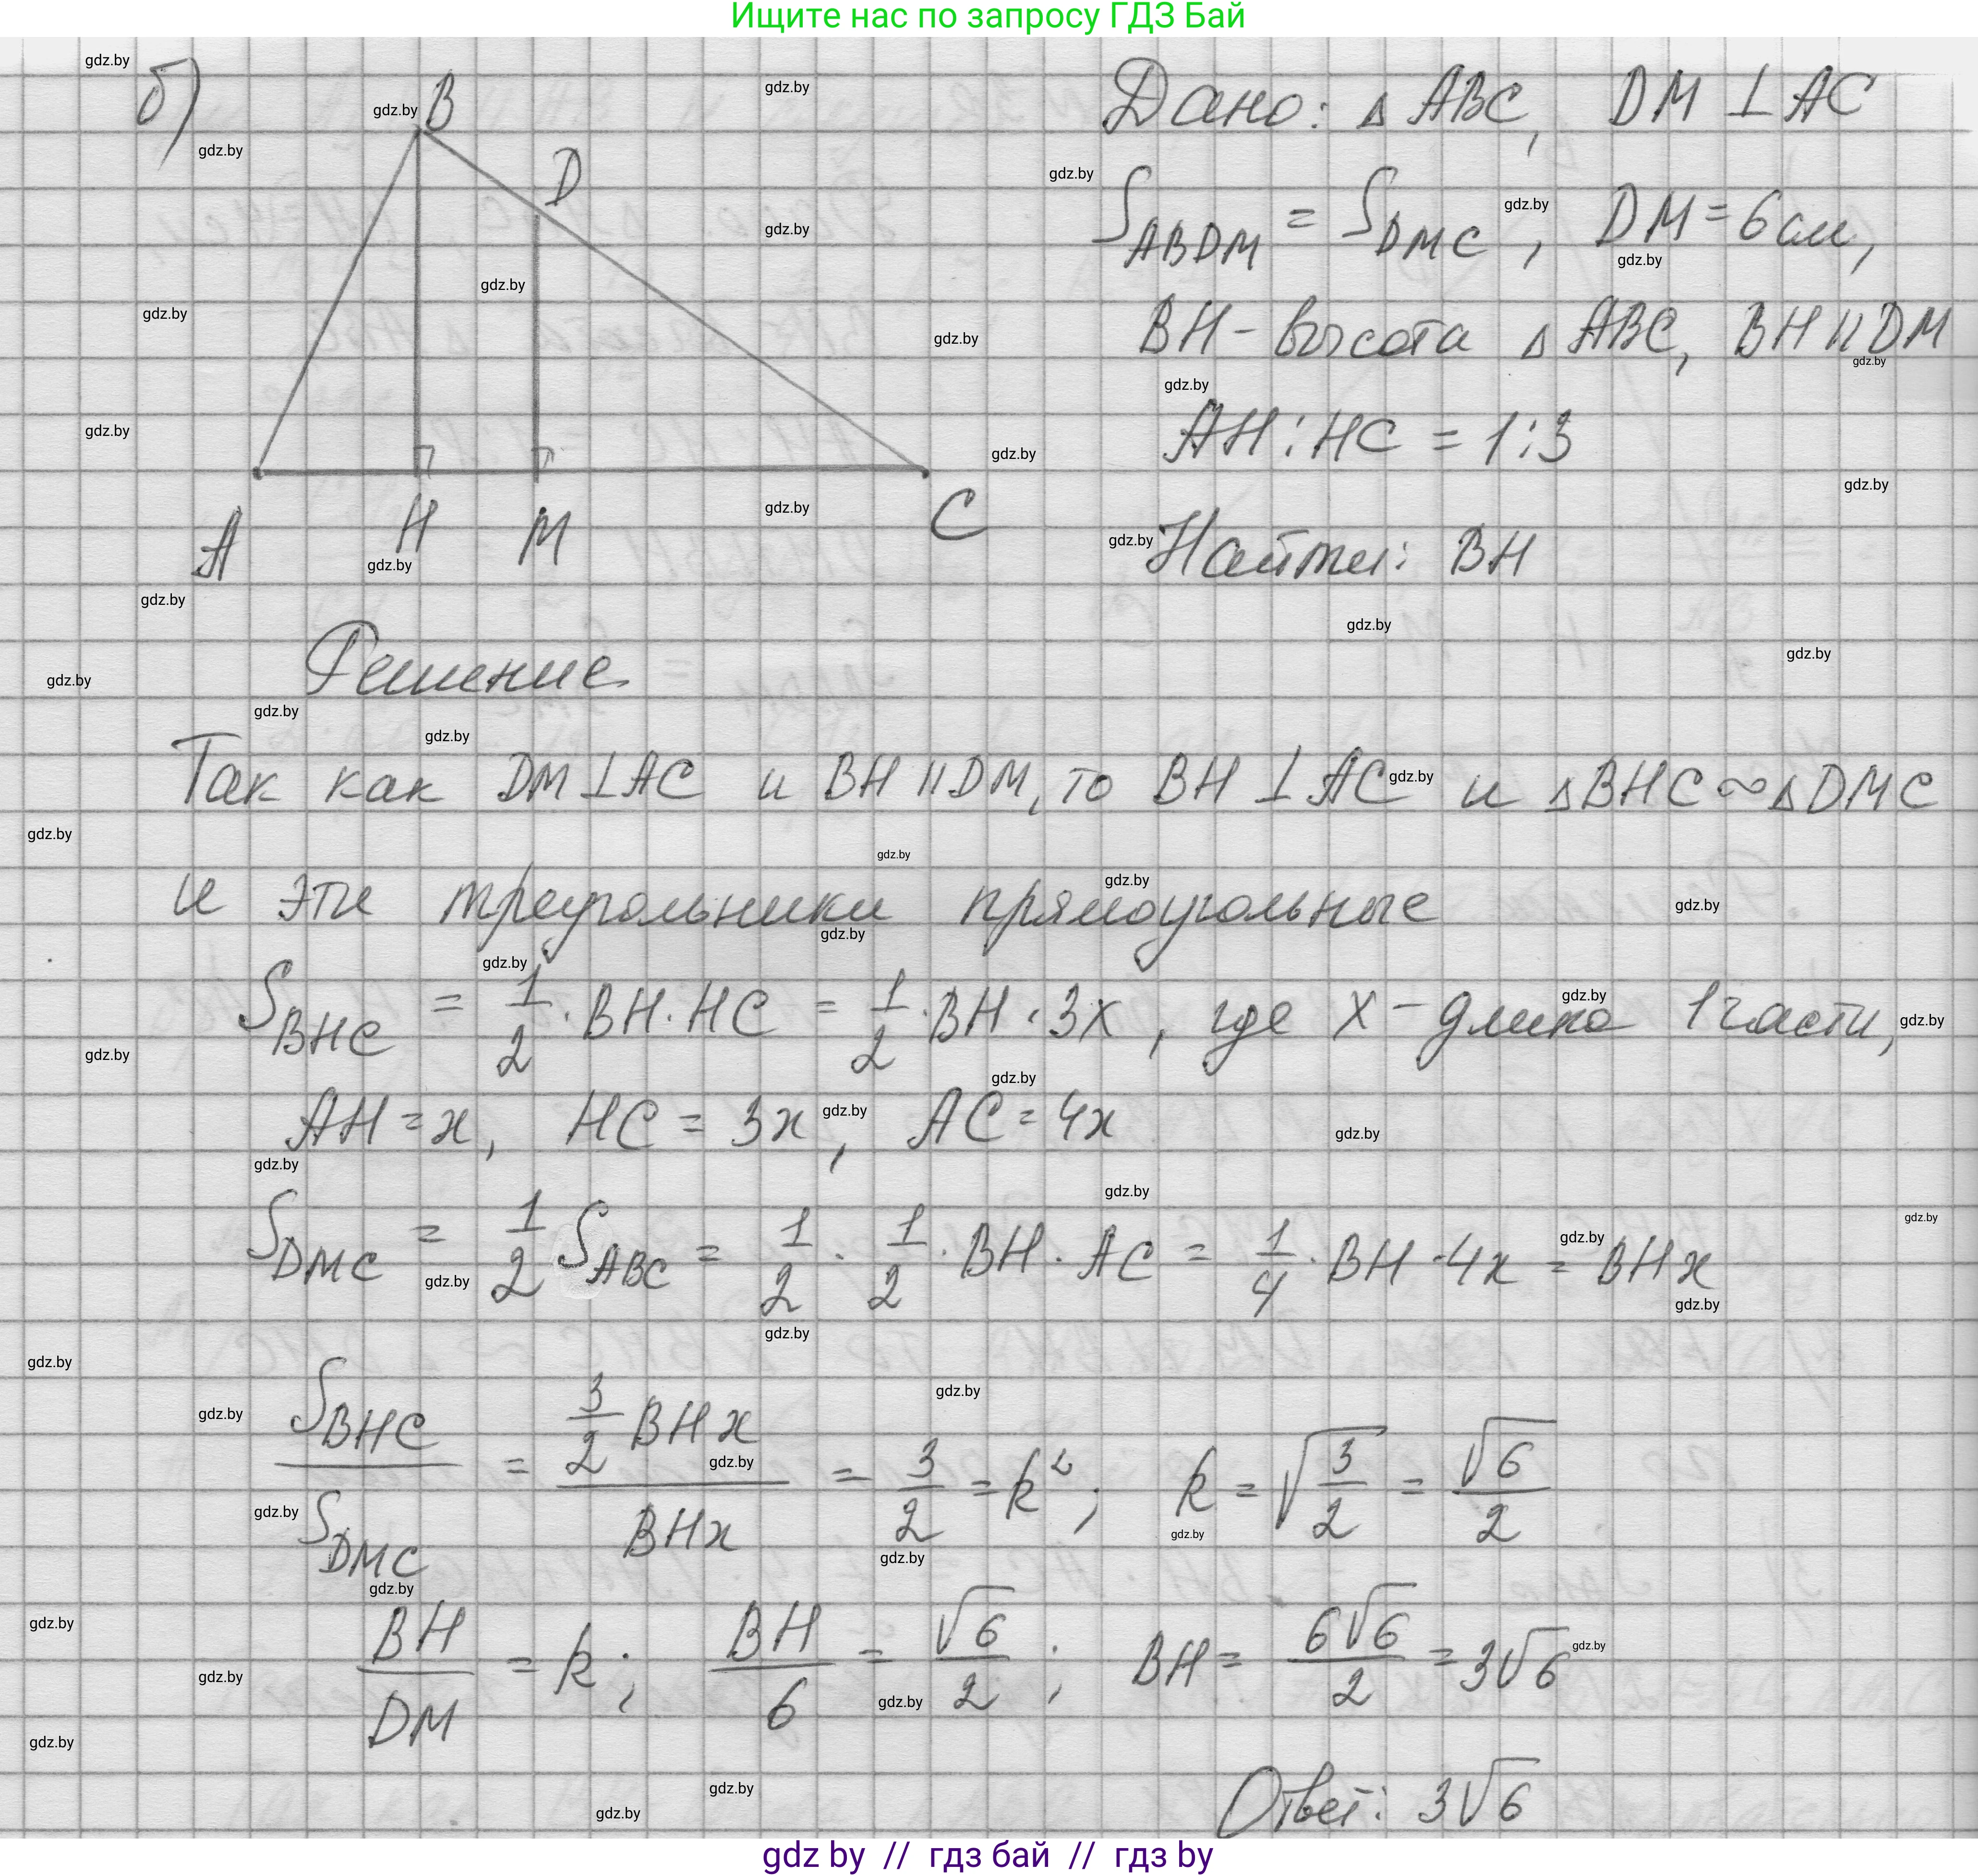 Ищите нас по запросу ГДЗ Бай
б)
B
D
A
H
M
C
Дано: △ ABC, DM ⊥ AC
S_ABDM = S_DMC, DM = 6 см,
BH - высота △ ABC, BH || DM
AH : HC = 1 : 3
Найти: BH
Решение
Так как DM ⊥ AC и BH || DM, то BH ⊥ AC и △BHC ∾ △DMC
и эти треугольники прямоугольные
S_BHC = 1/2 · BH · HC = 1/2 · BH · 3x, где x - длина 1 части,
AH = x, HC = 3x, AC = 4x
S_DMC = 1/2 S_ABC = 1/2 · 1/2 · BH · AC = 1/4 · BH · 4x = BHx
S_BHC / S_DMC = (3/2 BHx) / (BHx) = 3/2 = k²; k = √(3/2) = √6/2
BH/DM = k; BH/6 = √6/2; BH = 6√6/2 = 3√6
Ответ: 3√6
gdz by // гдз бай // гдз by